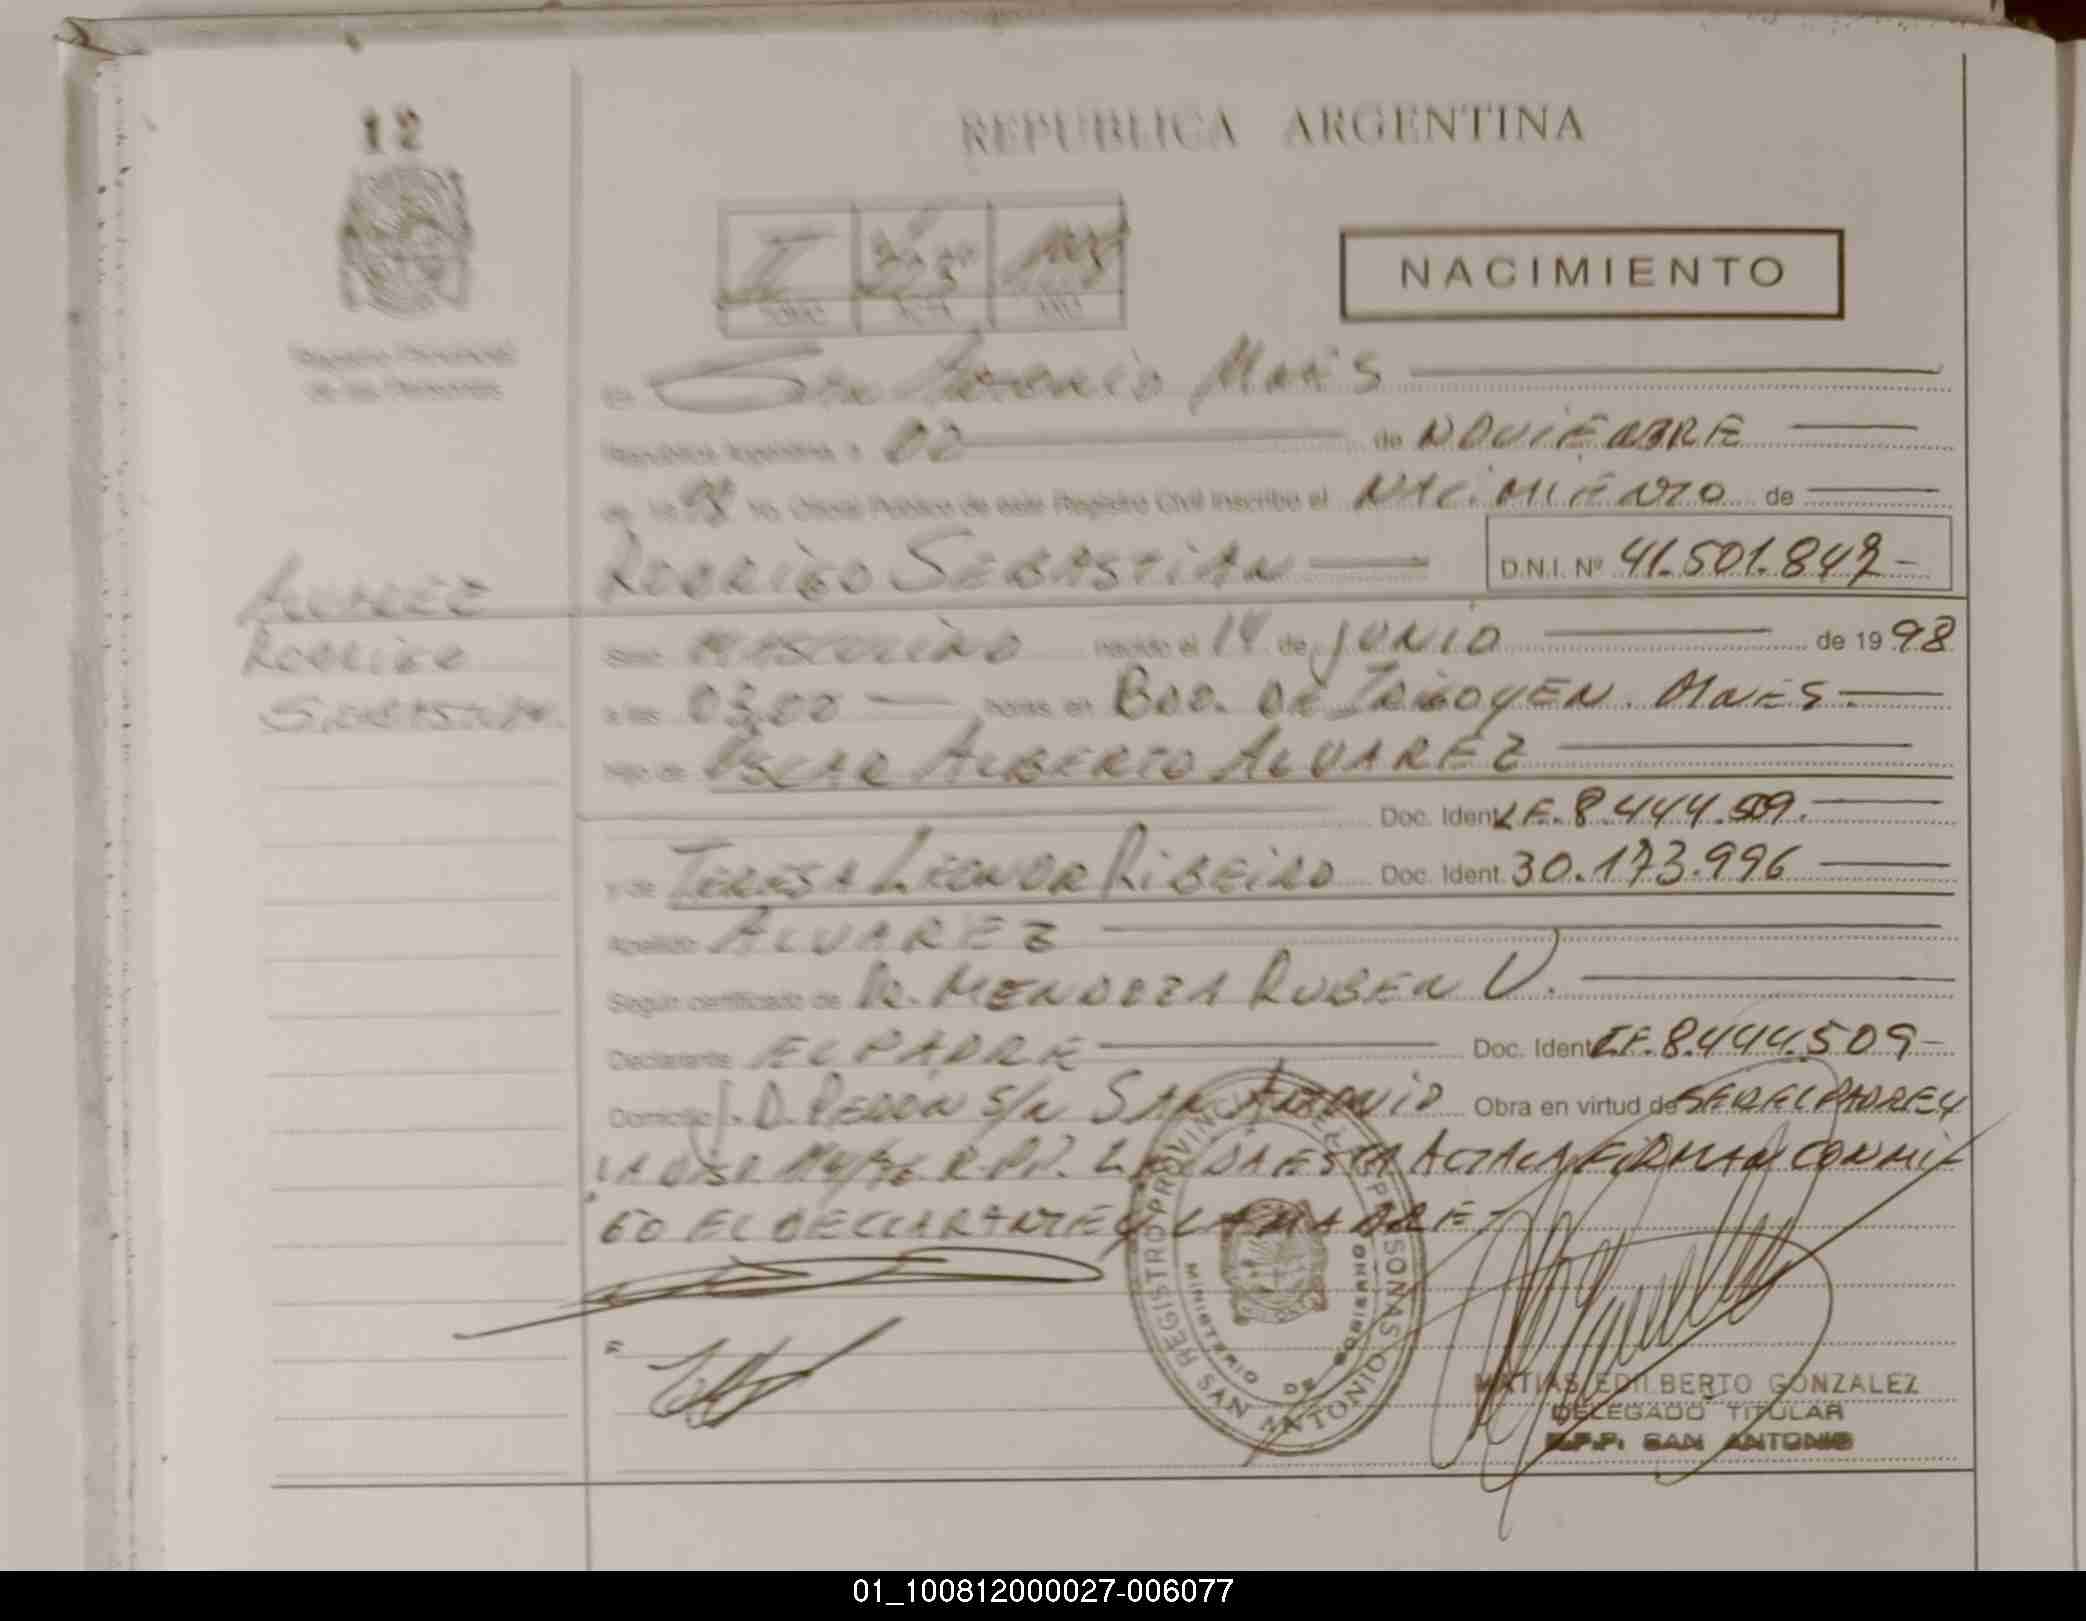 12
REPUBLICA ARGENTINA
I
TOMO ACTA AÑO
NACIMIENTO
Registro Provincial
de las Personas
En San Antonio Mnes
República Argentina a 02 de NOVIEMBRE
de 19 98 Yo Oficial Público de este Registro Civil inscribo el NACIMIENTO de
RODRIGO SEBASTIAN D.N.I. Nº 41.501.842-
ALVAREZ
RODRIGO
SEBASTIAN.
Sexo MASCULINO nacido el 14 de JUNIO de 19 98
a las 03,00 horas en BDO. DE IRIGOYEN. MNES-
hijo de OSCAR ALBERTO ALVAREZ
Doc. Ident. LE. 8.444.509.
y de TERESA LEONOR RIBEIRO Doc. Ident. 30.173.996
Apellido ALVAREZ
Según certificado de DR. MENDOZA RUBEN V.
Declarante EL PADRE Doc. Ident. LE. 8.444.509-
Domicilio J. D. PERON S/N SAN ANTONIO Obra en virtud de SER EL PADRE Y
LA DISP. R.P.P. LEIDA ESTA ACTA LA FIRMAN CONMI
GO EL DECLARANTE Y LA MADRE-
REGISTRO PROVINCIAL DE LAS PERSONAS
MINISTERIO DE GOBIERNO
SAN ANTONIO
MATIAS EDILBERTO GONZALEZ
DELEGADO TITULAR
R.P.P. SAN ANTONIO
01_100812000027-006077